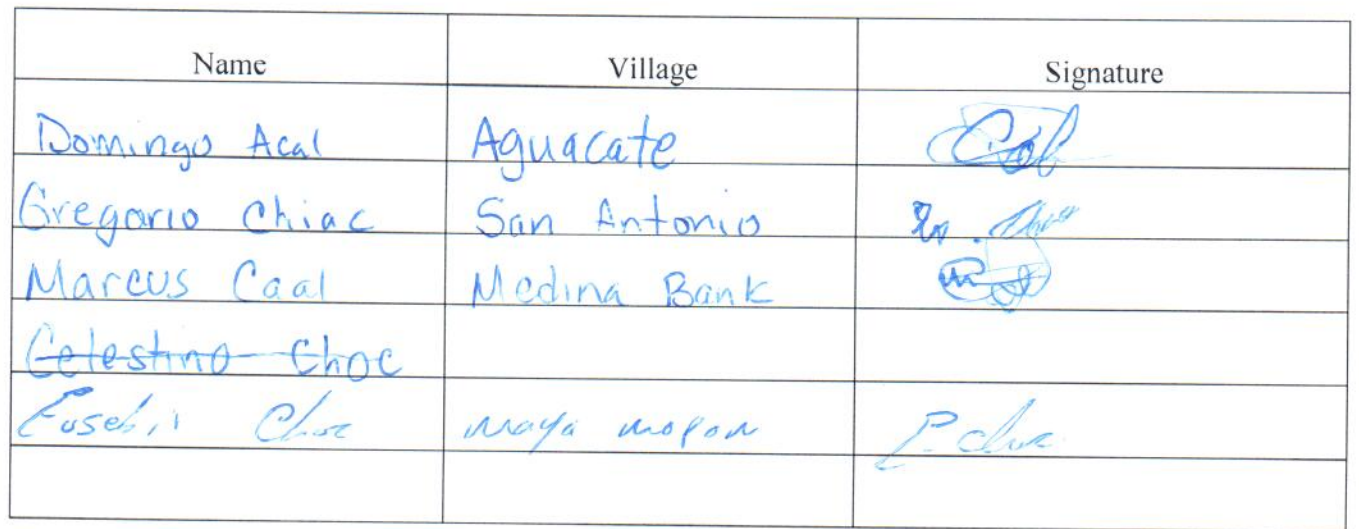 Name Village Signature
Domingo Acal Aguacate
Gregorio Chiac San Antonio
Marcus Caal Medina Bank
Celestino Choc
Eusebii Choc maya mopan